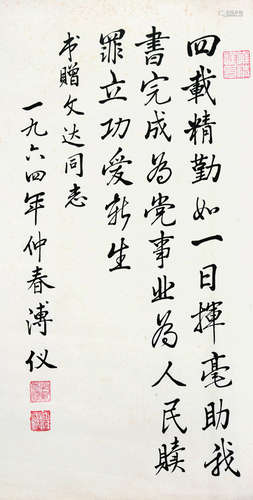 四載精勤如一日揮毫助我
書完成為党事业為人民贖
罪立功受新生
书贈文达同志
一九六四年仲春溥仪